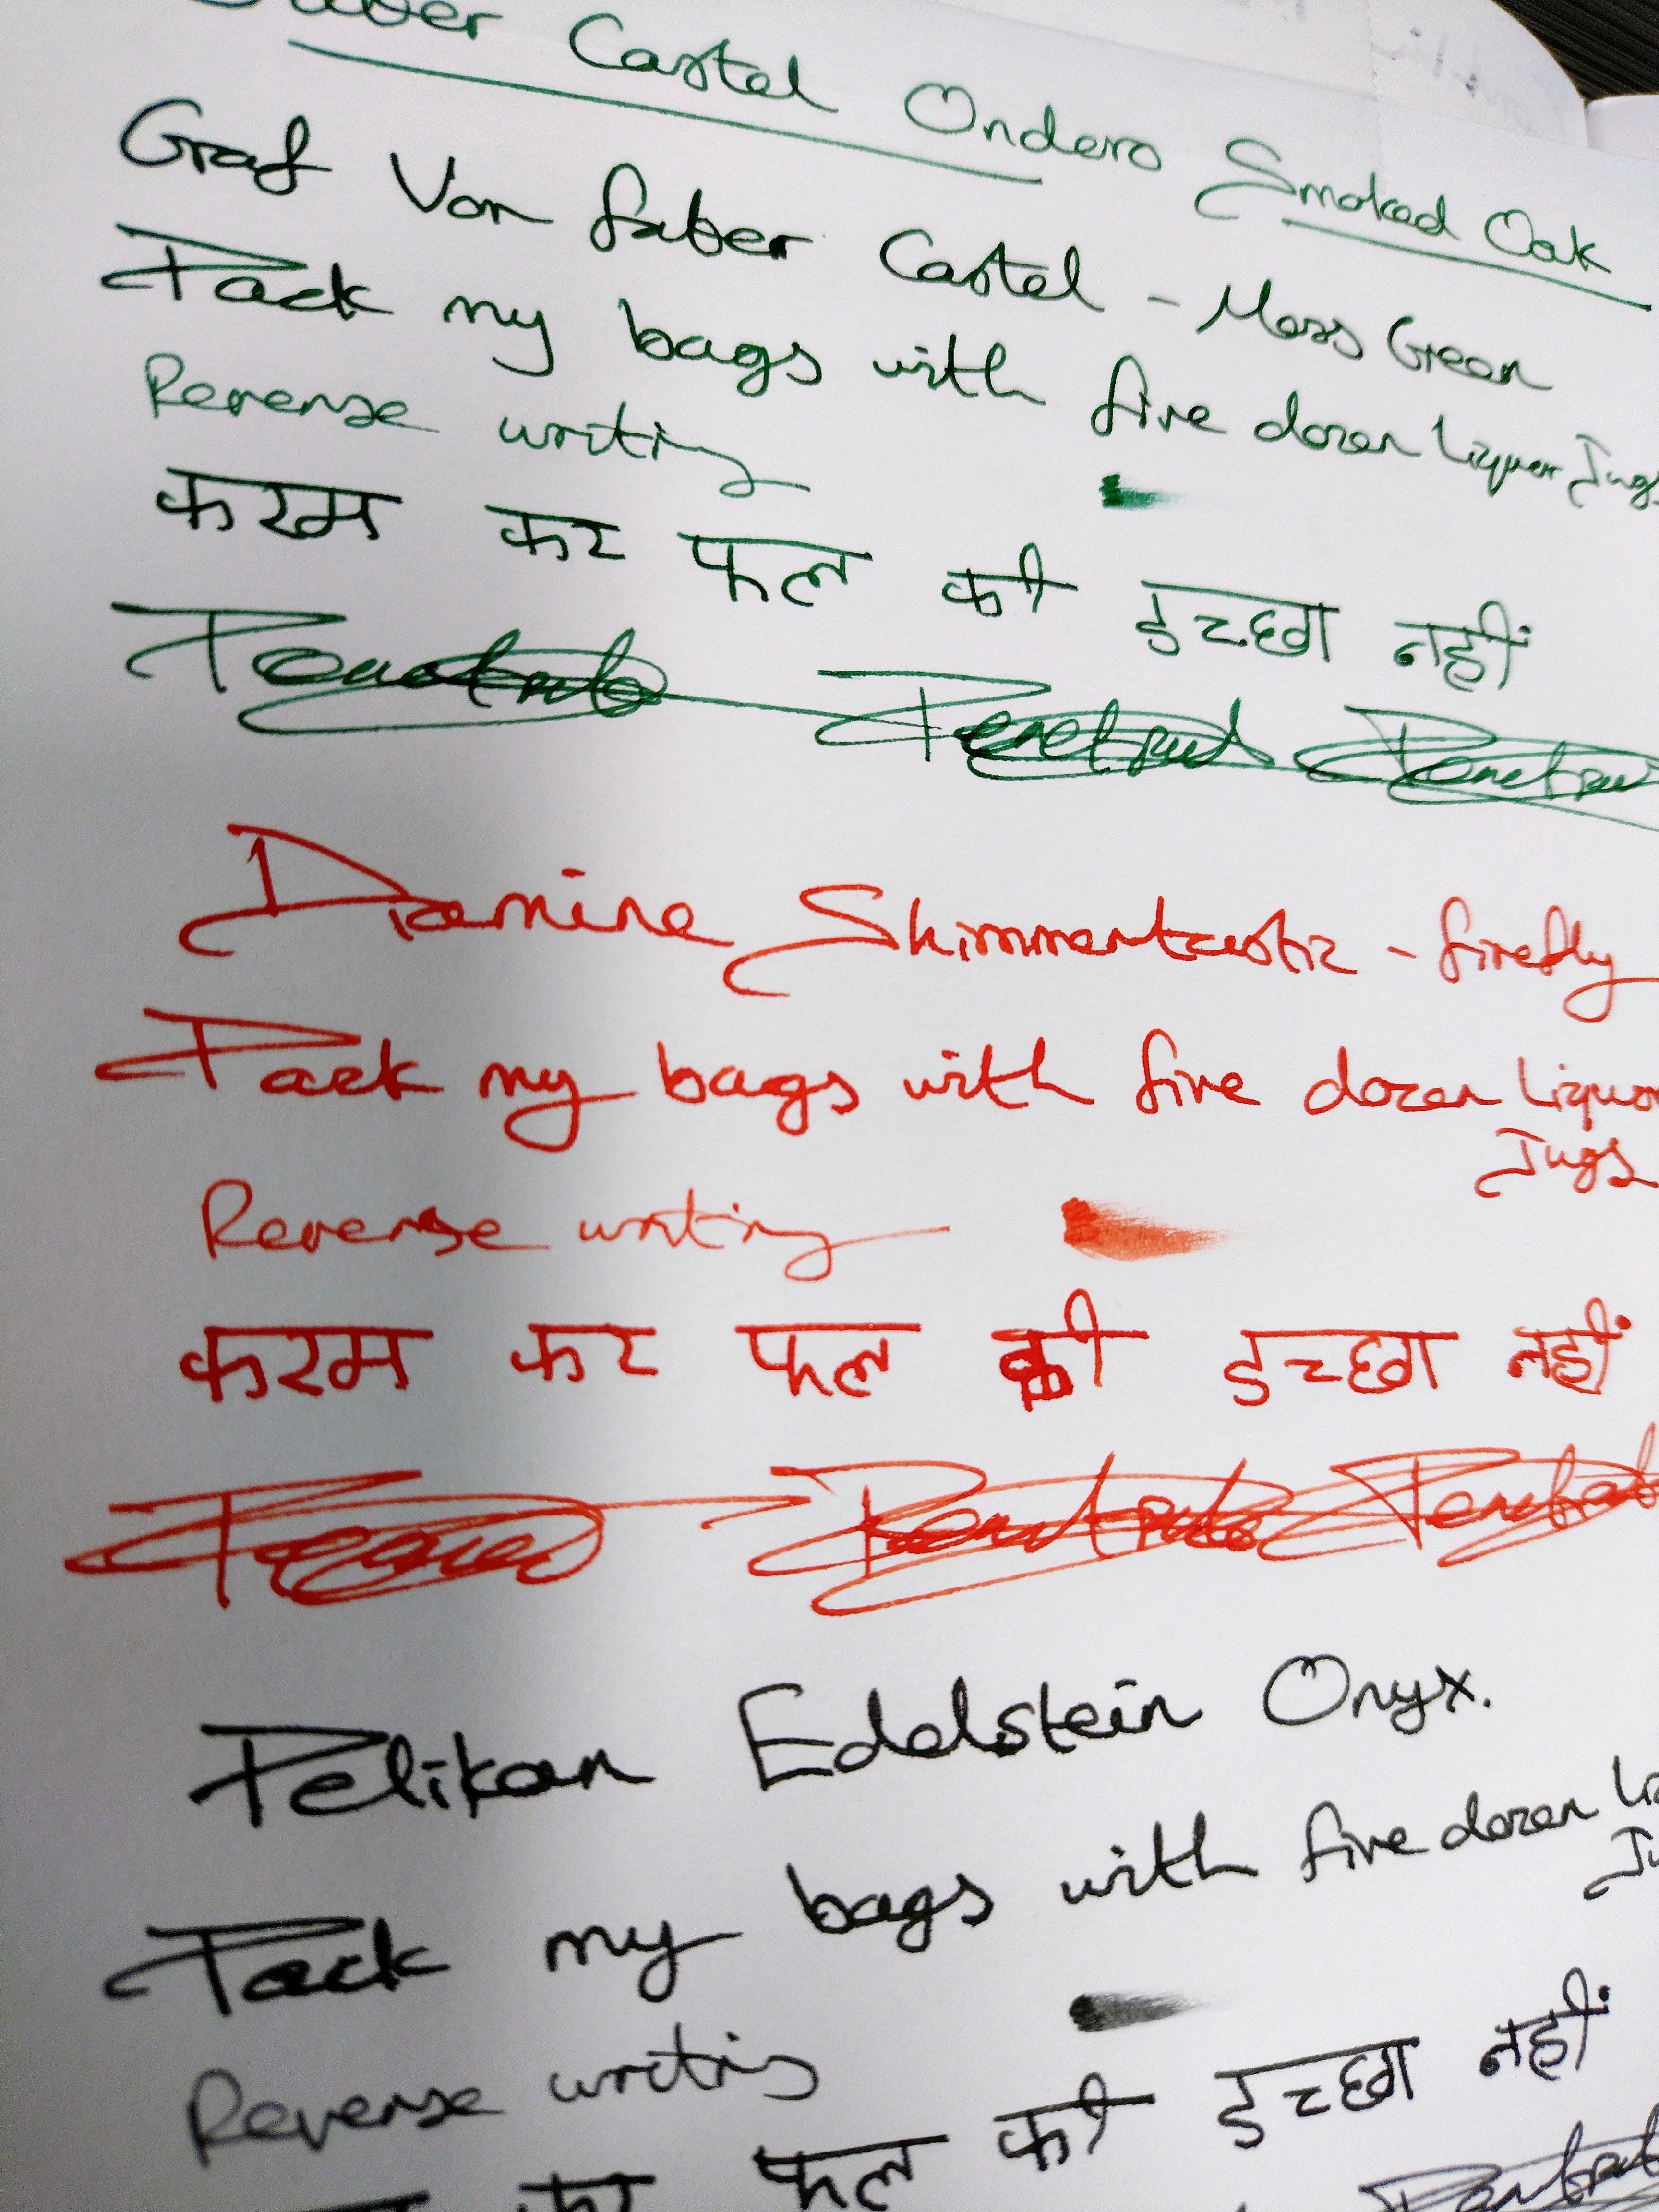 Faber Castel Ondero Smoked Oak
Graf Von Faber Castel - Moss Green
Pack my bags with five dozen Liquor Jugs
Reverse writing
करम कर फल की इच्छा नहीं
Diamine Shimmertastic - firefly
Pack my bags with five dozen Liquor
Jugs
Reverse writing
करम कर फल की इच्छा नहीं
Pelikan Edelstein Onyx.
Pack my bags with five dozen
Reverse writing
कर फल की इच्छा नहीं